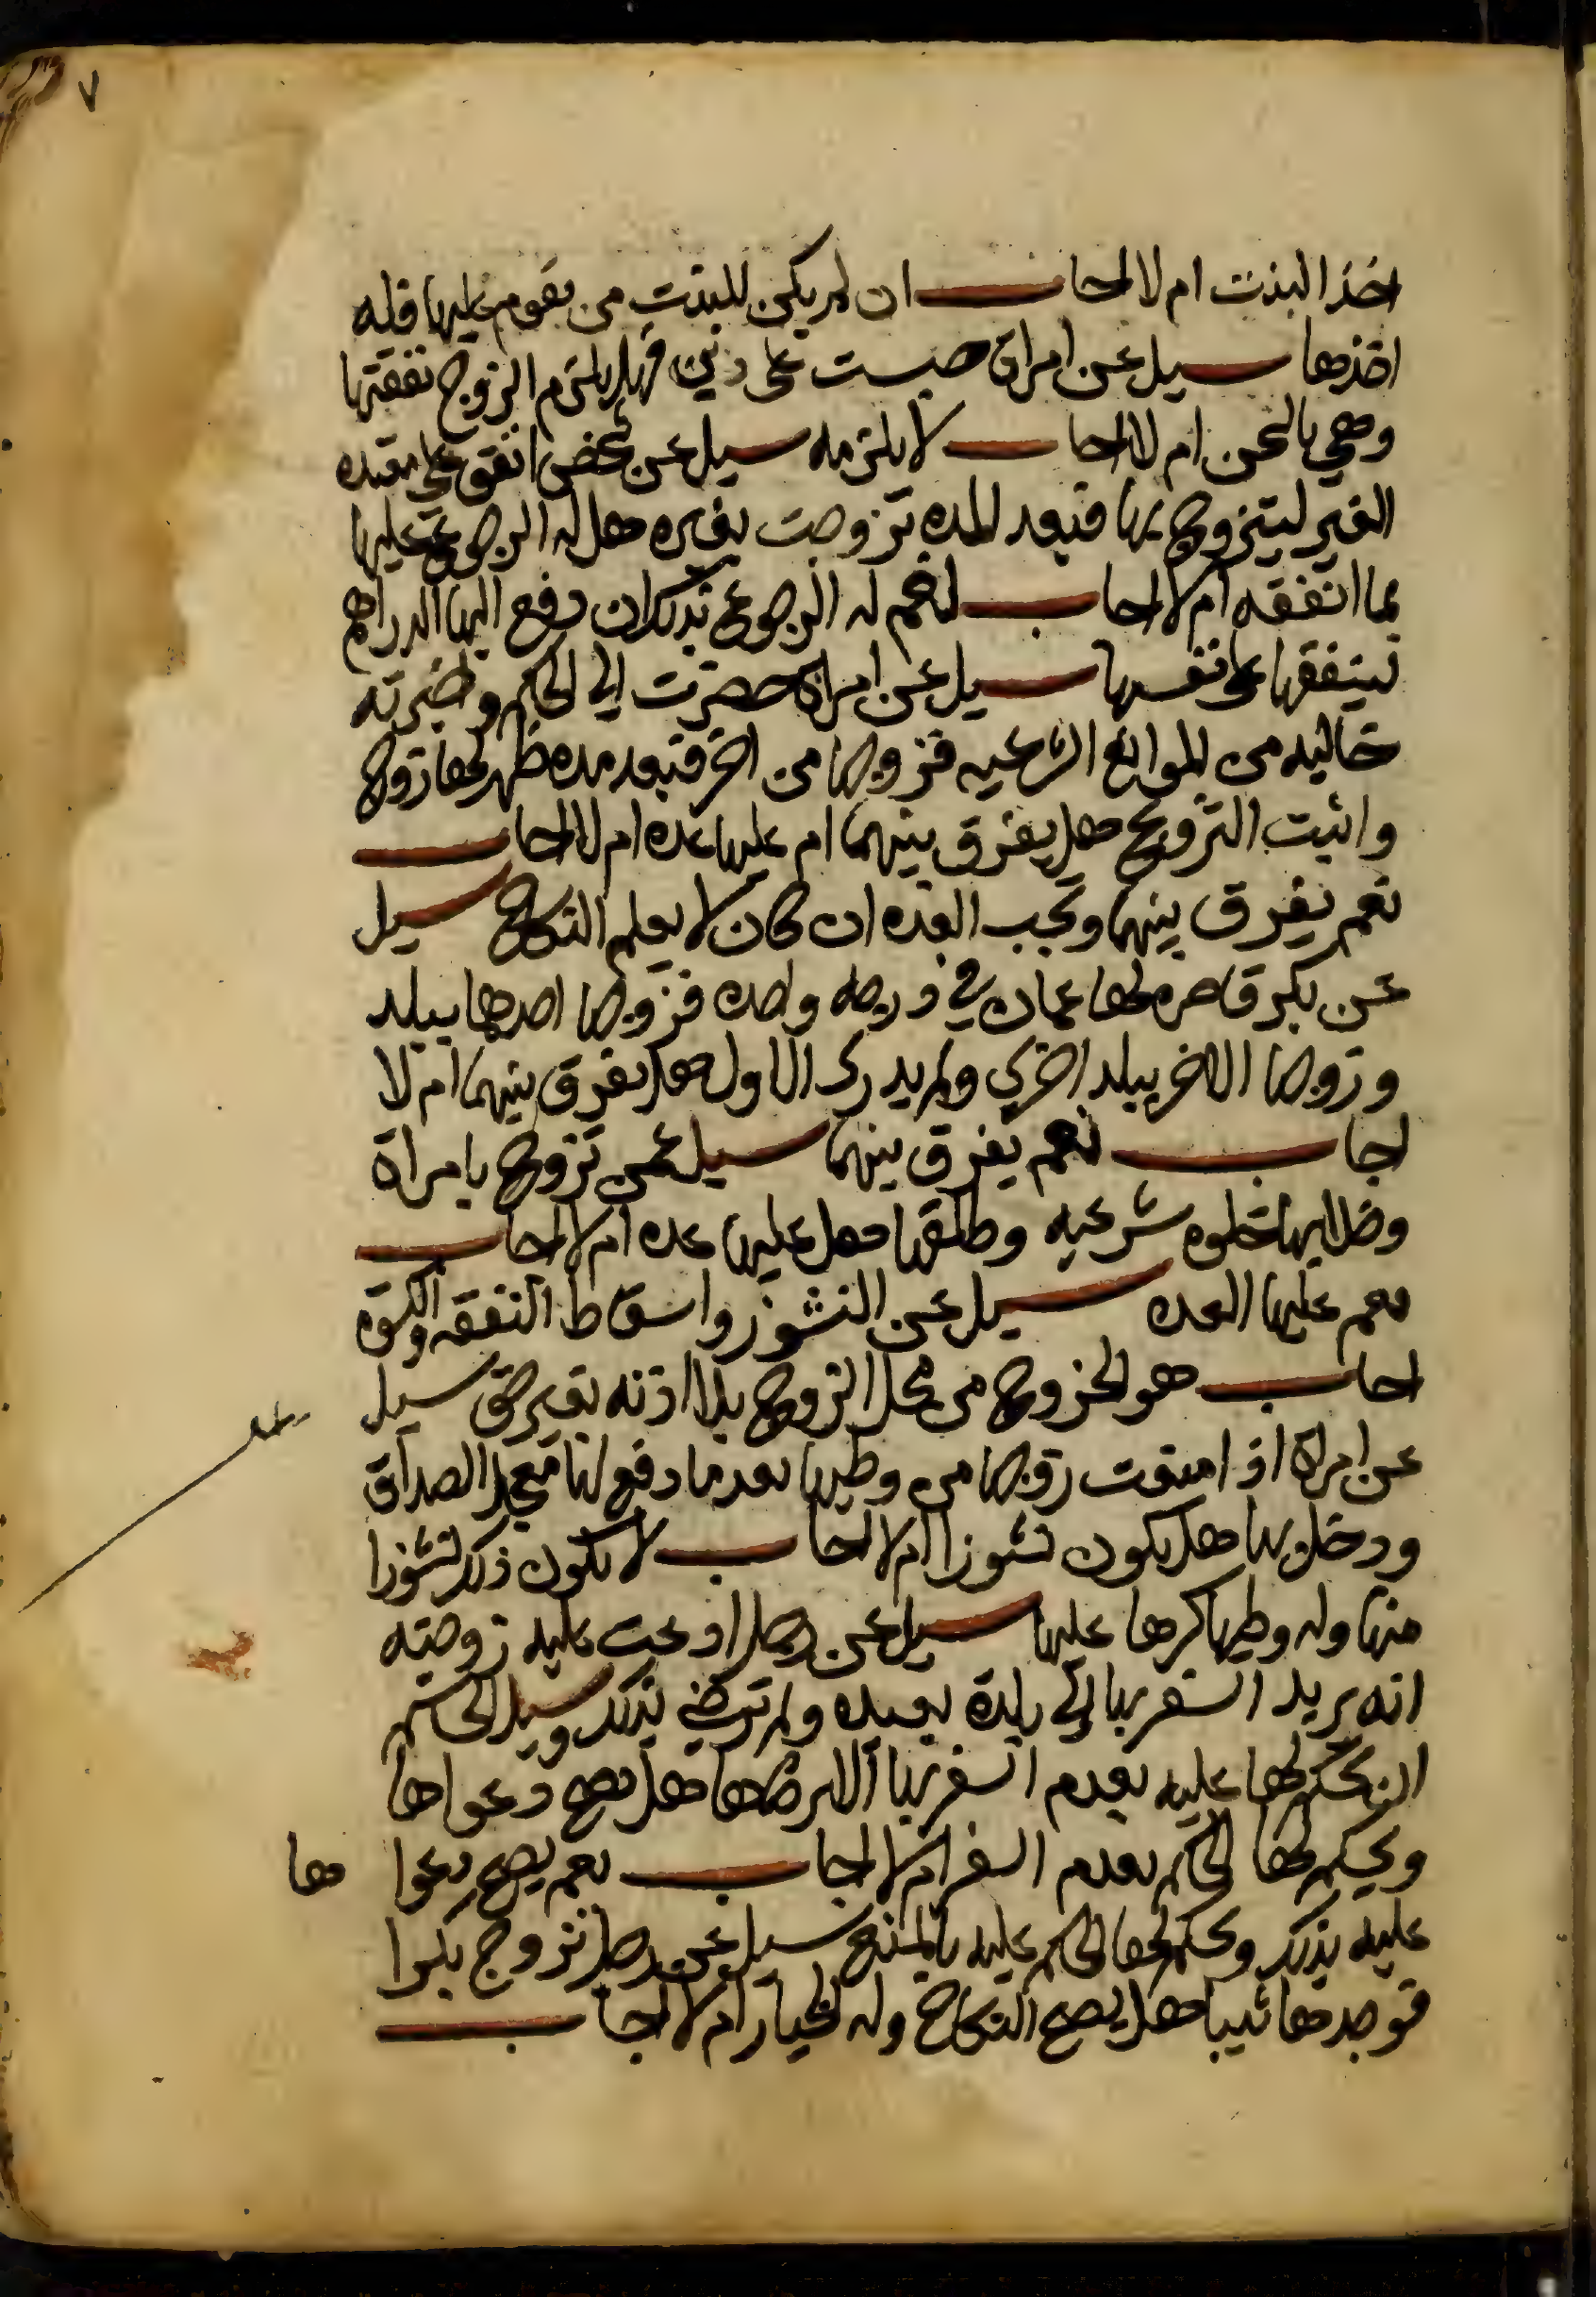 ٧
اخذ البنت ام لا اجاب ان لم يكن للبنت من يقوم عليها فله
اخذها سيل عن امراة حبست على دين فهل يلزم الزوج نفقتها
وهي بالسجن ام لا اجاب لا يلزمه سيل عن شخص انفق على معتده
الغير ليتزوج بها فبعد المده تزوجت بغيره هل له الرجوع عليها
بما انفقه ام لا اجاب نعم له الرجوع بذلك ان دفع اليها الدراهم
لتنفقها على نفسها سيل عن امراة حضرت الي الحاكم واخبرته
خاليه من الموانع الشرعيه فزوجها من اخر فبعد مده ظهر لها زوج
واثبت التزويج هل يفرق بينهما ام عليها عده ام لا اجاب
نعم يفرق بينهما وتجب العده ان كان لا يعلم النكاح سيل
عن بكر قاصره لها عمان في درجه واحده فزوجها احدهما ببلد
وزوجها الاخر ببلد اخري ولم يدرك الاول هل يفرق بينهما ام لا
اجاب نعم يفرق بينهما سيل عمن تزوج بامراة
وخلا بها خلوه شرعيه وطلقها هل عليها عده ام لا اجاب
نعم عليها العده سيل عن النشوز واسقاط النفقه والكسوه
اجاب هو الخروج من محل الزوج بلا اذنه بغير حق سيل
عن امراة اذا منعت زوجها من وطيها بعد ما دفع لها معجل الصداق
ودخل بها هل يكون نشوزا ام لا اجاب لا يكون ذلك نشوزا
منها وله وطيها كرها عليها سيل عن رجل ادعت عليه زوجته
انه يريد السفر بها الي بلدة بعيده ولم ترضي بذلك وسيل الحاكم
ان يحكم لها عليه بعدم السفر بها الا برضاها هل تصح دعواها
ويحكم لها الحاكم بعدم السفر ام لا اجاب نعم يصح دعوا ها
عليه بذلك ويحكم لها الحاكم عليه بالمنع سيل عن رجل تزوج بكرا
فوجدها ثيبا هل يصح النكاح وله الخيار ام لا اجاب